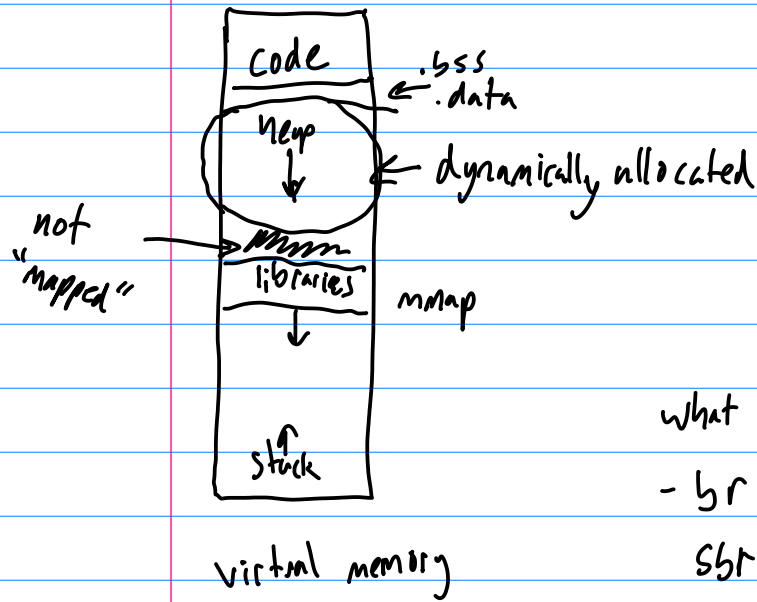 code
.bss
.data
heap
dynamically allocated
not
"mapped"
libraries
mmap
what
stack
- br
virtual memory
sbr